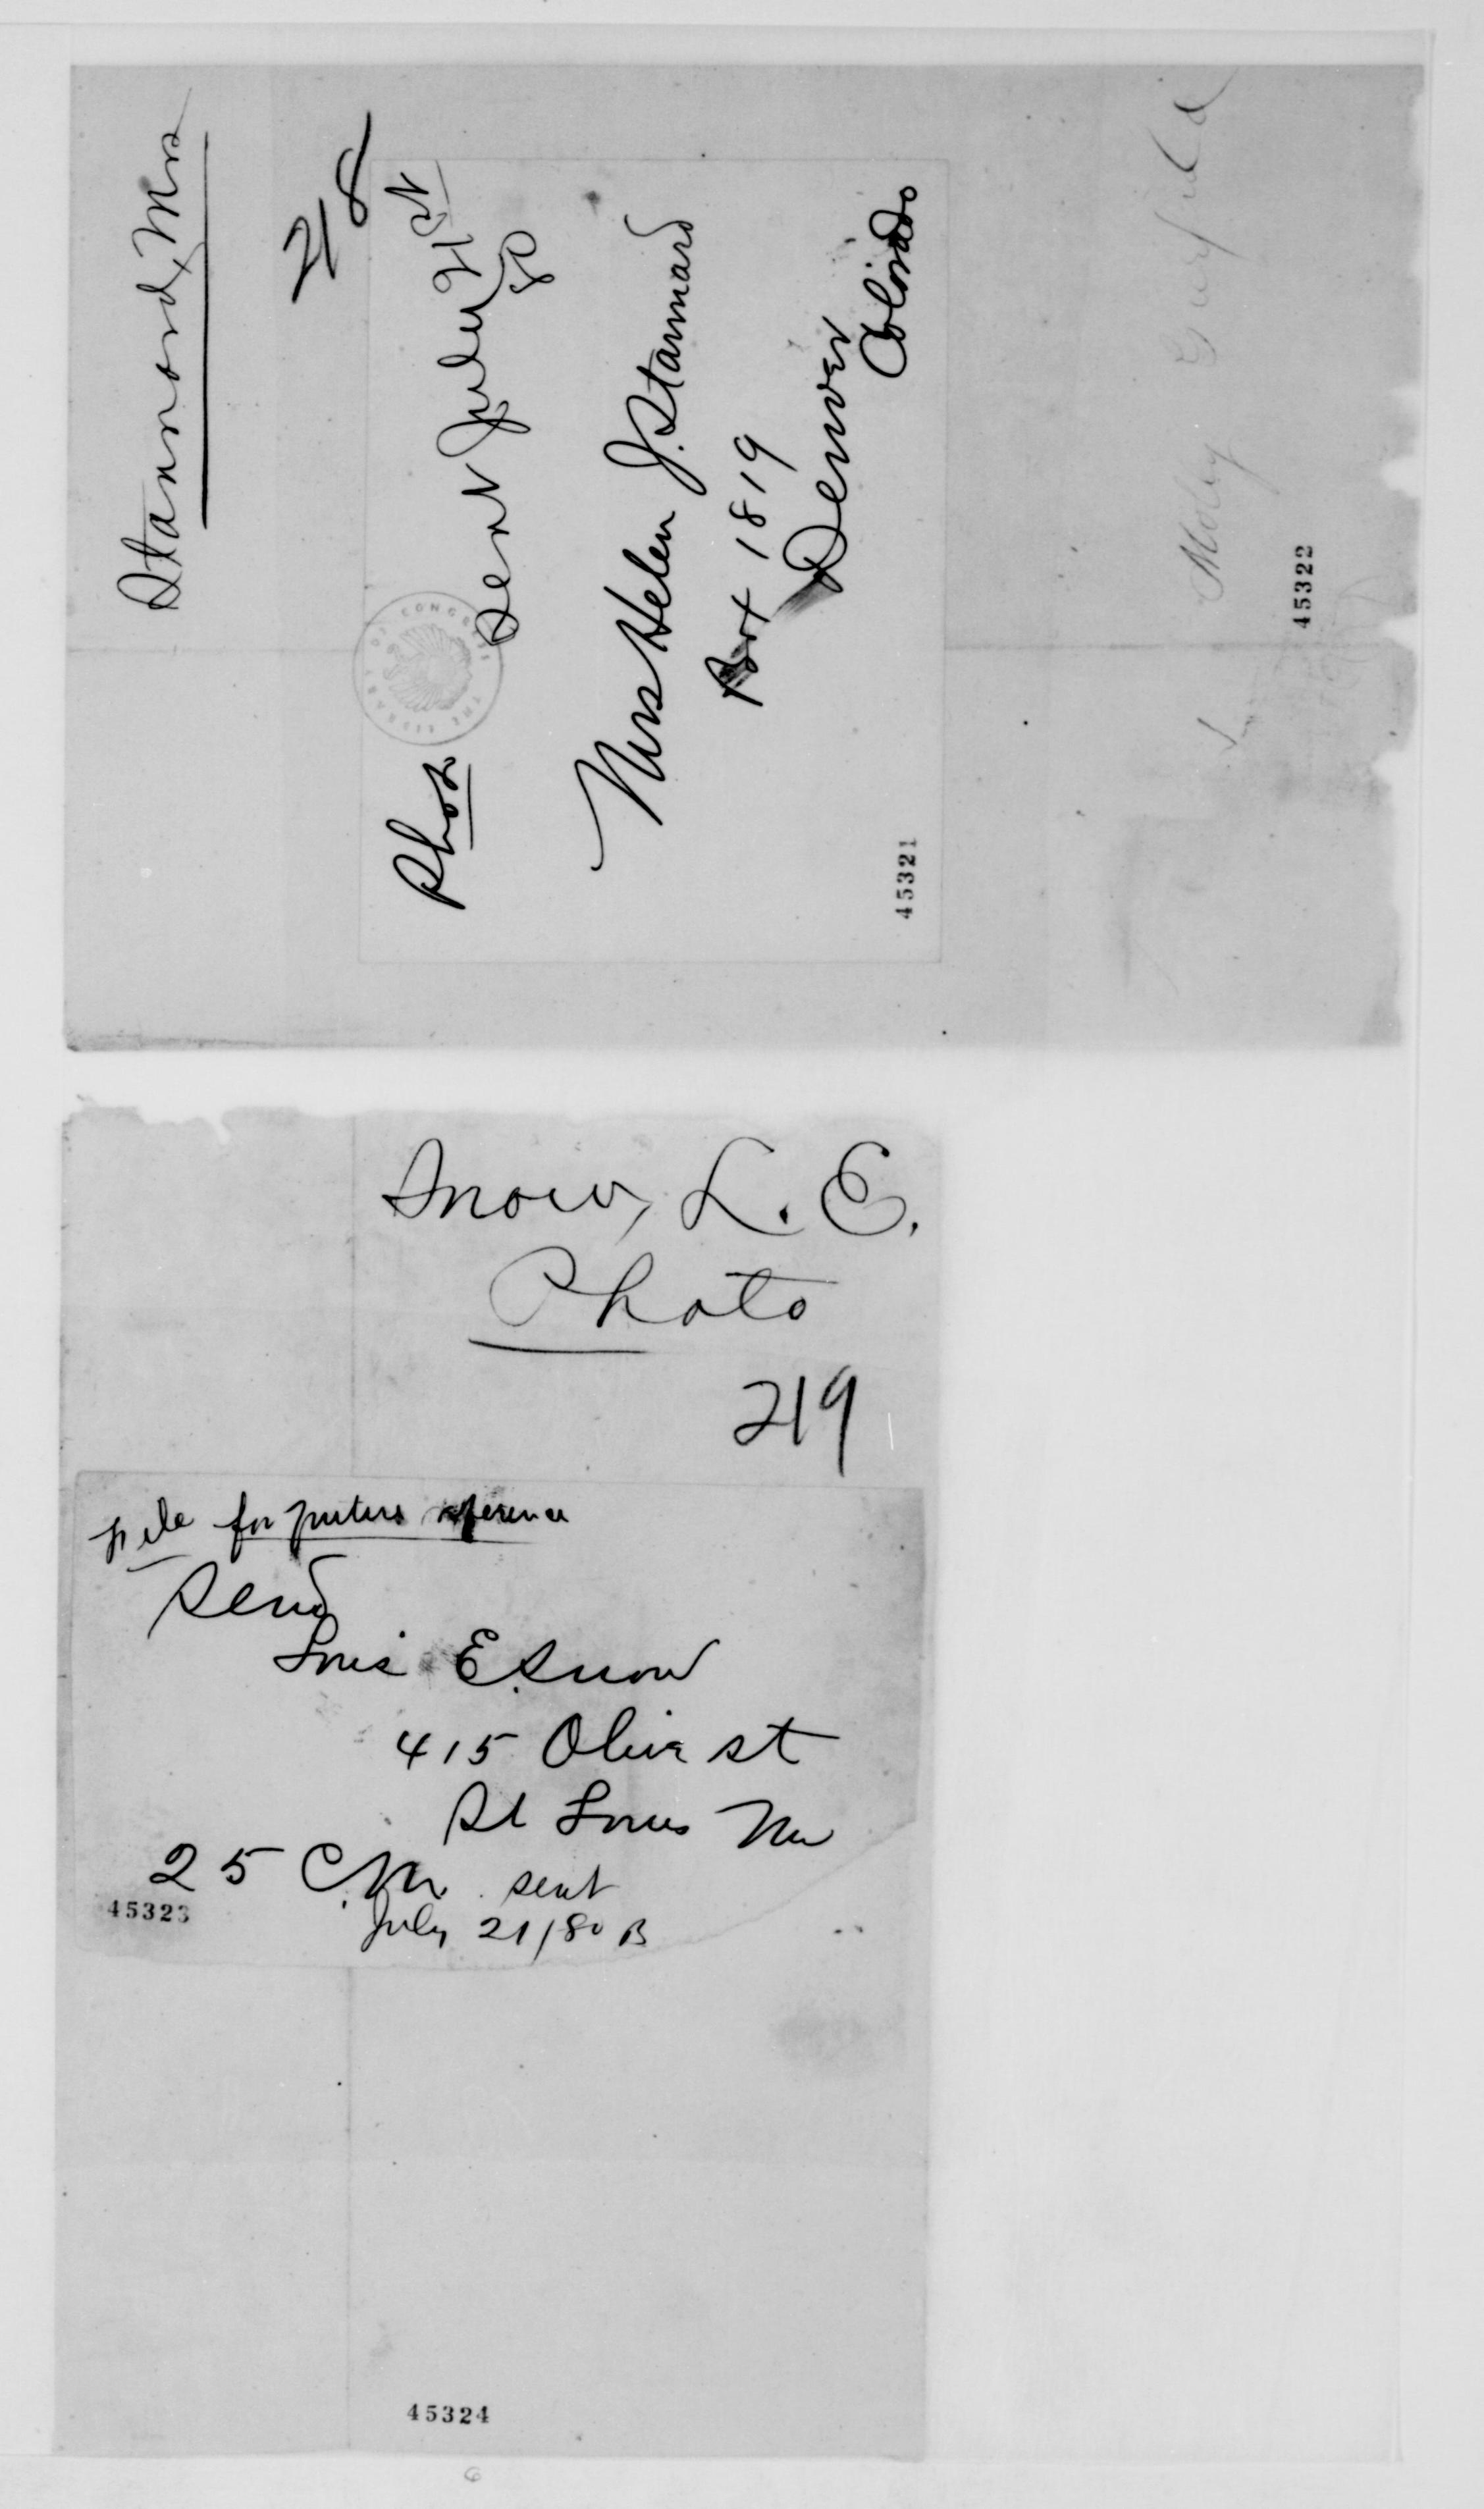 Stannard, Mrs
218
Photo
Sent July 21st
80
Mrs Helen J. Stannard
Box 1819
Denver
Colorado
45321
Garfield
45322
THE LIBRARY OF CONGRESS
Snow, L. E.
Photo
219
File for future reference
Send
Louis E. Snow
415 Olive st
St Louis Mo
25 C.M. sent
July 21/80 B
45323
45324
6